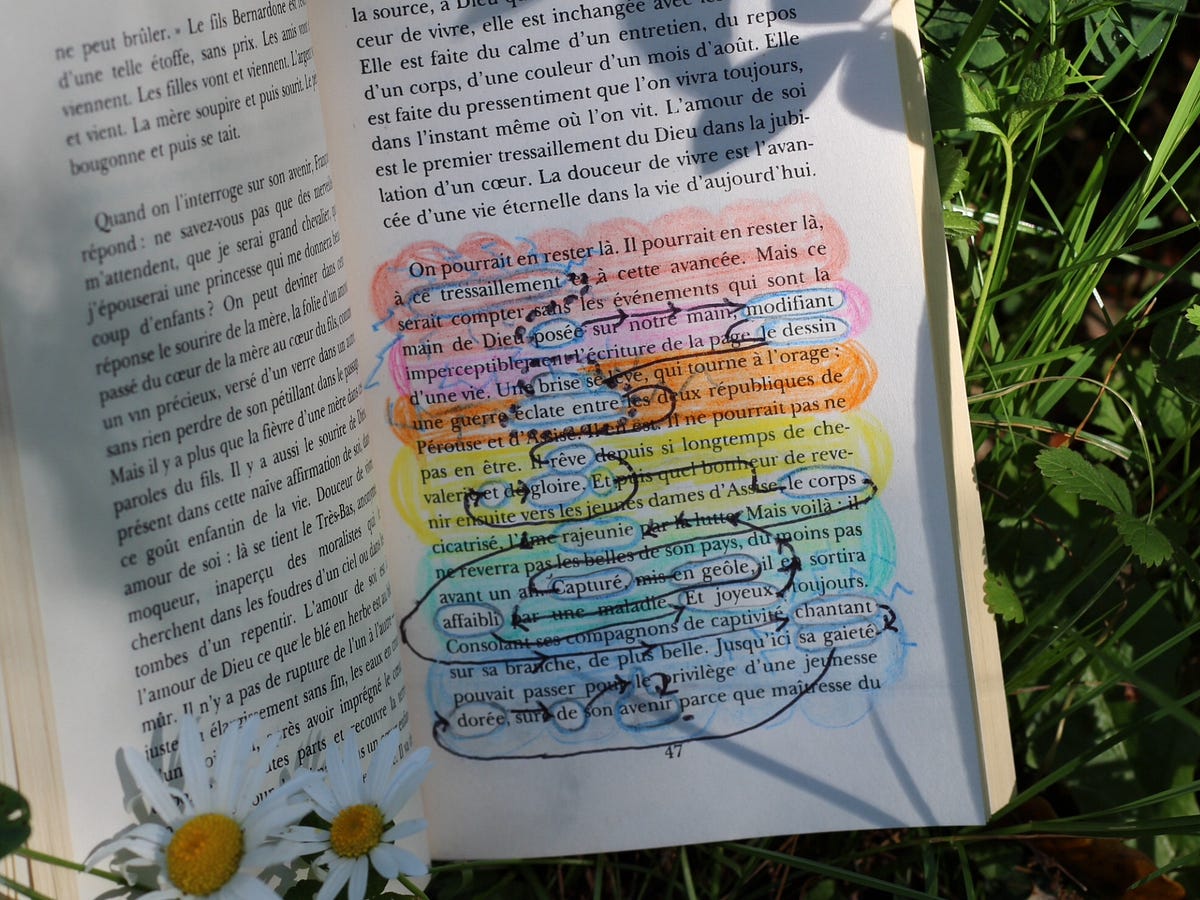 ne peut brûler. » Le fils Bernardone est
d'une telle étoffe, sans prix. Les amis vont
viennent. Les filles vont et viennent. L'argent
et vient. La mère soupire et puis sourit. Le
bougonne et puis se tait.
Quand on l'interroge sur son avenir,
répond : ne savez-vous pas que des
m'attendent, que je serai grand chevalier,
j'épouserai une princesse qui me donnera
coup d'enfants ? On peut deviner dans
réponse le sourire de la mère, la folie d'un
passé du cœur de la mère au cœur du fils,
un vin précieux, versé d'un verre dans un
sans rien perdre de son pétillant dans le
Mais il y a plus que la fièvre d'une mère dans
paroles du fils. Il y a aussi le sourire de
présent dans cette naïve affirmation de soi,
ce goût enfantin de la vie. Douceur de
amour de soi : là se tient le Très-Bas,
moqueur, inaperçu des moralistes qui
cherchent dans les foudres d'un ciel ou
tombes d'un repentir. L'amour de soi est
l'amour de Dieu ce que le blé en herbe est au
mûr. Il n'y a pas de rupture de l'un à l'autre
élargissement sans fin, les eaux en
après avoir imprégné le
parts et recouvre la
la source, à Dieu
ceur de vivre, elle est inchangée avec
Elle est faite du calme d'un entretien, du repos
d'un corps, d'une couleur d'un mois d'août. Elle
est faite du pressentiment que l'on vivra toujours,
dans l'instant même où l'on vit. L'amour de soi
est le premier tressaillement du Dieu dans la jubi-
lation d'un cœur. La douceur de vivre est l'avan-
cée d'une vie éternelle dans la vie d'aujourd'hui.
On pourrait en rester là. Il pourrait en rester là,
à ce tressaillement et à cette avancée. Mais ce
serait compter sans les événements qui sont la
main de Dieu posée sur notre main, modifiant
imperceptiblement l'écriture de la page, le dessin
d'une vie. Une brise se lève, qui tourne à l'orage :
une guerre éclate entre les deux républiques de
Pérouse et d'Assise. Il en est. Il ne pourrait pas ne
pas en être. Il rêve depuis si longtemps de che-
valerie et de gloire. Et puis quel bonheur de reve-
nir ensuite vers les jeunes dames d'Assise, le corps
cicatrisé, l'âme rajeunie par la lutte. Mais voilà : il
ne reverra pas les belles de son pays, du moins pas
avant un an. Capturé, mis en geôle, il en sortira
affaibli par une maladie. Et joyeux, toujours.
Consolant ses compagnons de captivité, chantant
sur sa branche, de plus belle. Jusqu'ici sa gaieté
pouvait passer pour le privilège d'une jeunesse
dorée, sûre de son avenir parce que maîtresse du
47